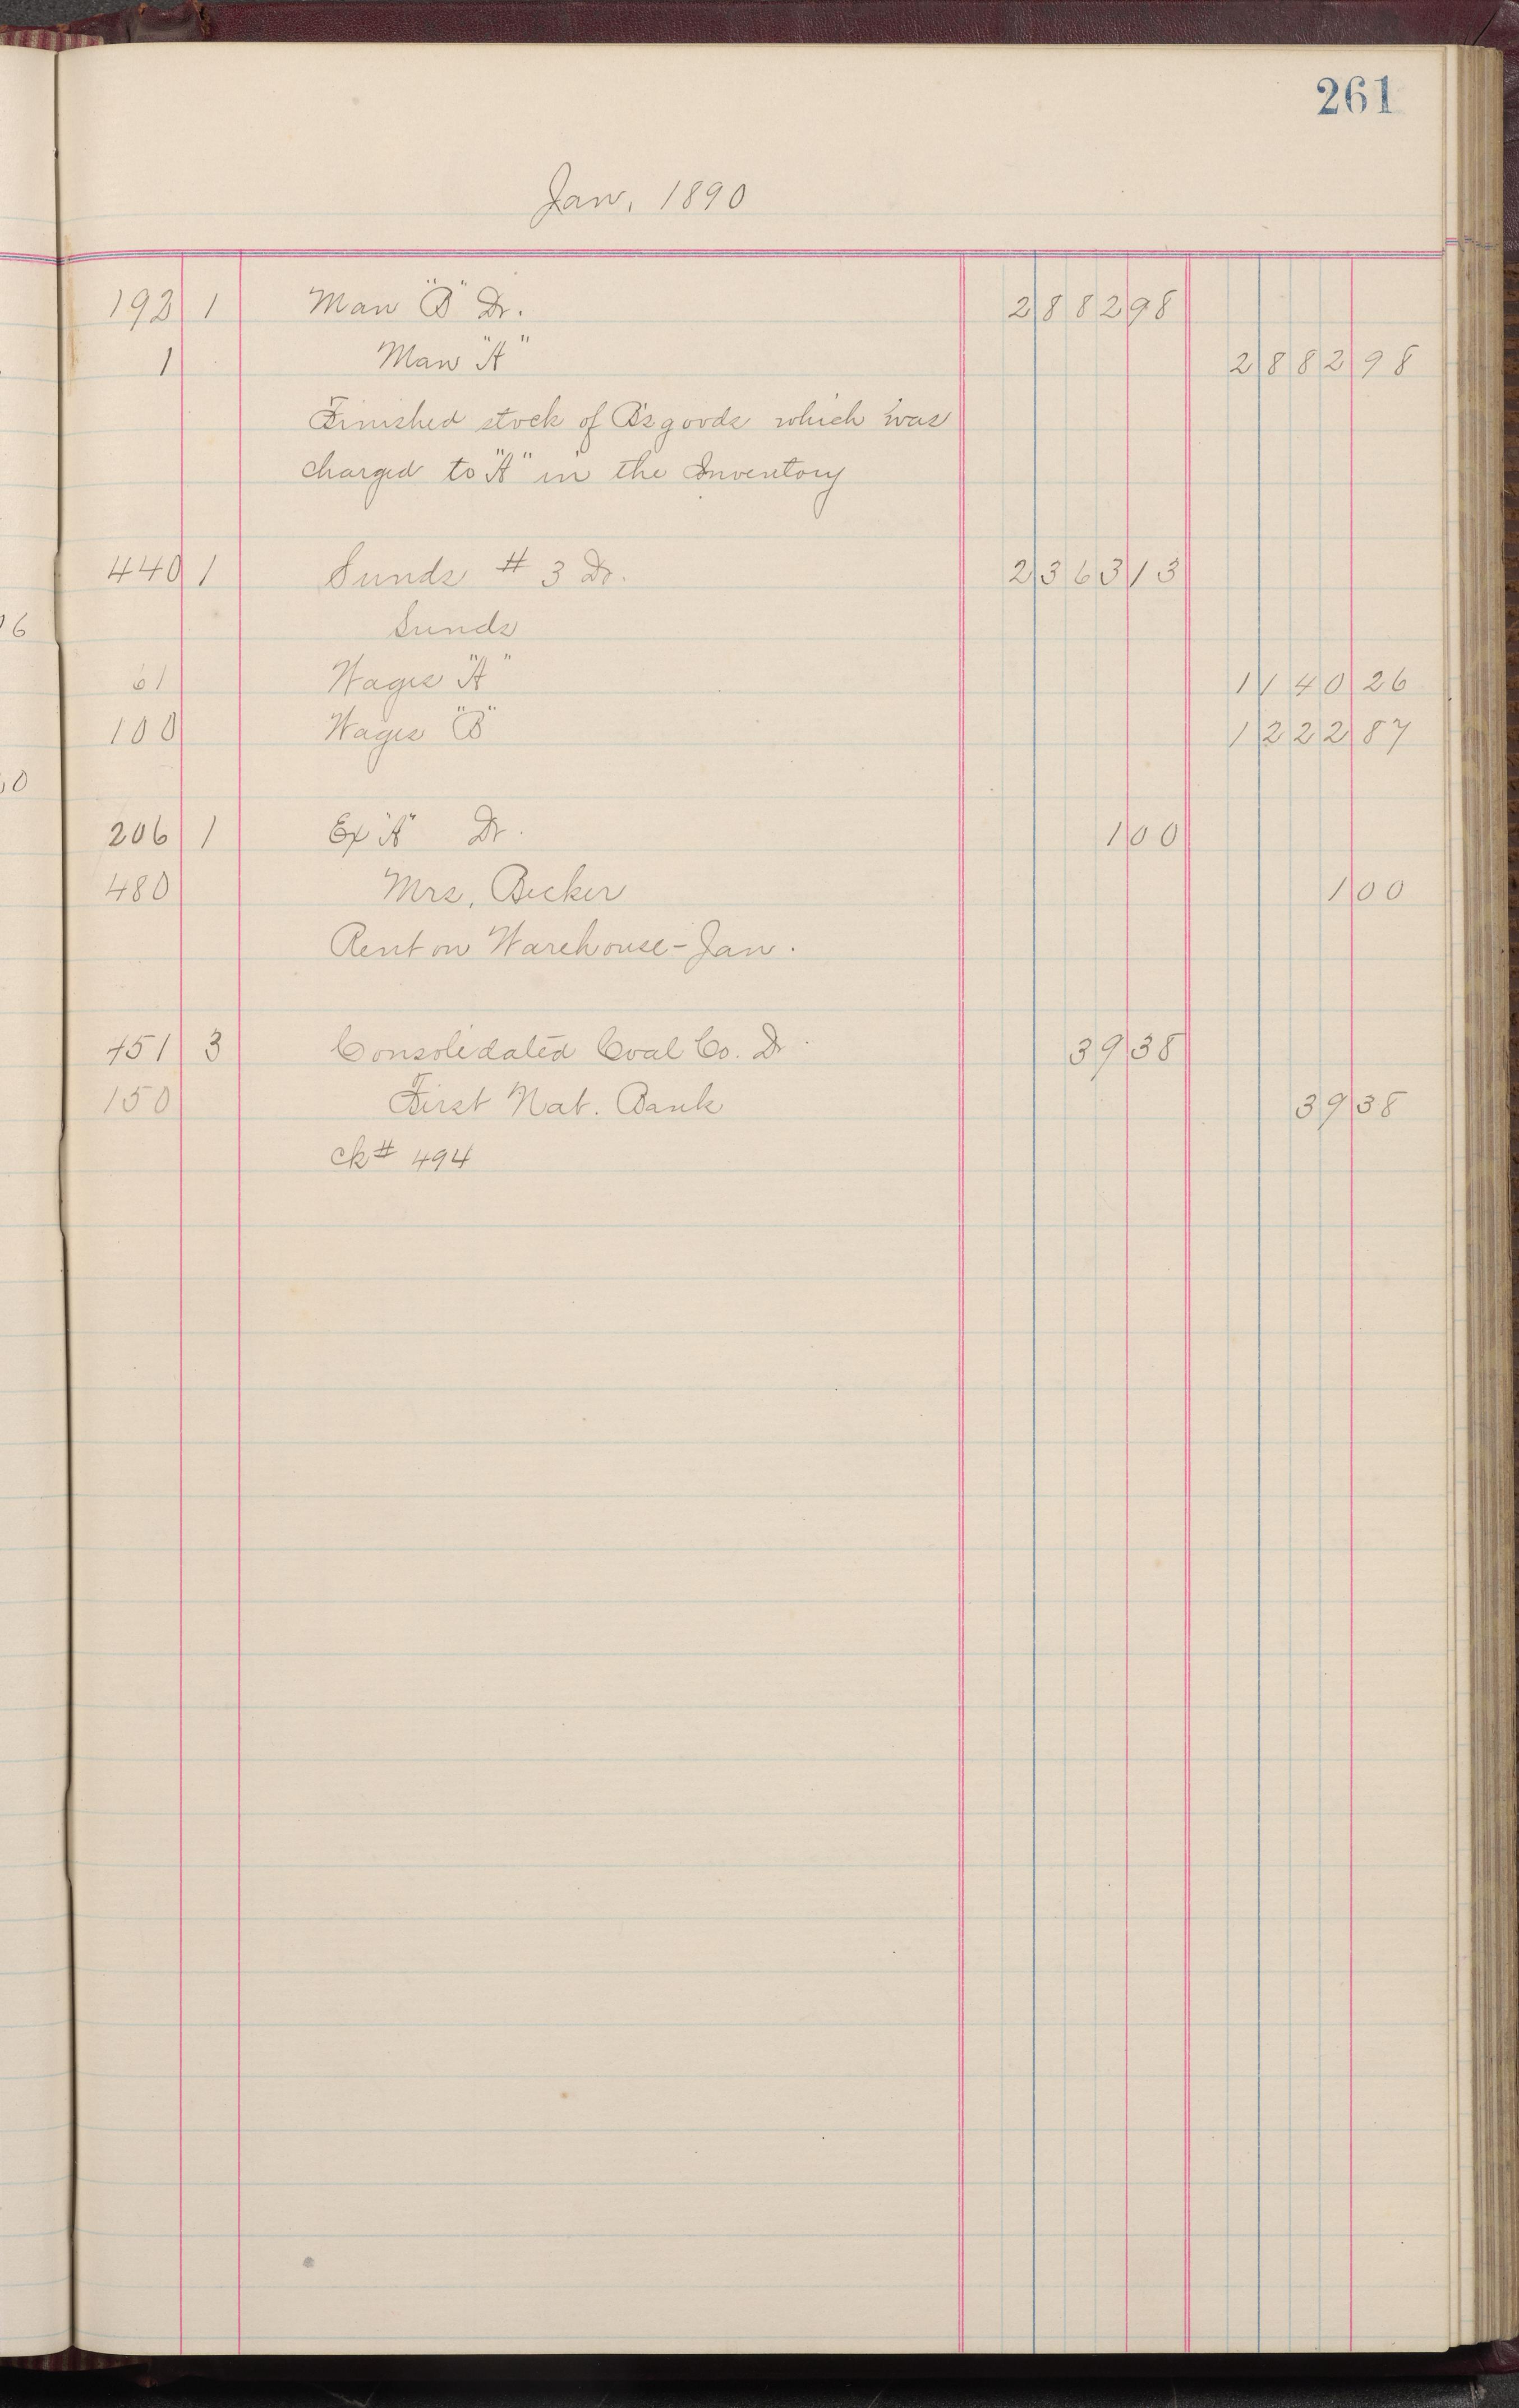 261
Jan, 1890
192 1 Man "B" Dr. 2882 98
1 Man "A" 2882 98
Finished stock of B's goods which was
charged to "A" in the Inventory
440 1 Sunds # 3 Dr. 2363 13
Sunds
61 Wages "A" 1140 26
100 Wages "B" 1222 87
206 1 Ex "A" Dr. 1 00
480 Mrs, Becker 1 00
Rent on Warehouse - Jan.
451 3 Consolidated Coal Co. Dr 39 38
150 First Nat. Bank 39 38
ck # 494